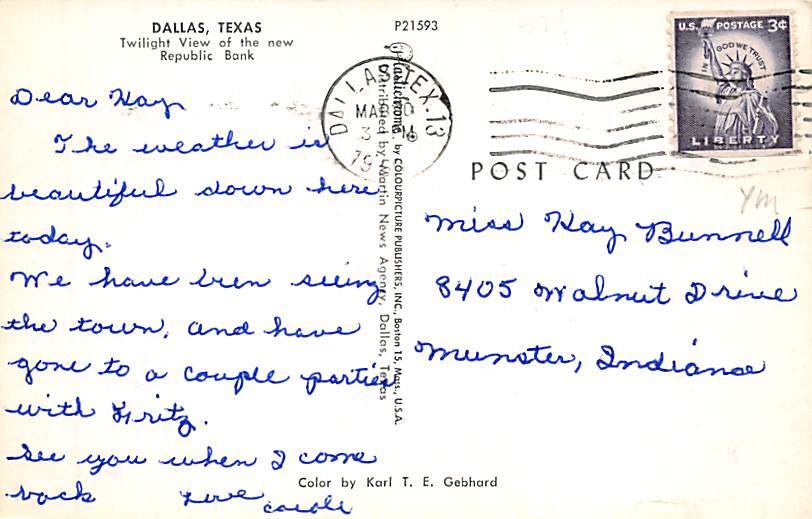 DALLAS, TEXAS
Twilight View of the new
Republic Bank
P21593
Dear Kay
The weather is
beautiful down here
today.
We have been seeing
the town, and have
gone to a couple parties
with Fritz.
See you when I come
back
Love
Carole
Plastichrome by COLOURPICTURE PUBLISHERS, INC., Boston 15, Mass., U.S.A.
Distributed by Martin News Agency, Dallas, Texas
Color by Karl T. E. Gebhard
DALLAS, TEX. 13
MAR
3 PM
19
U.S. POSTAGE 3¢
IN GOD WE TRUST
LIBERTY
POST CARD
YM
Miss Kay Bunnell
8405 Walnut Drive
Munster, Indiana